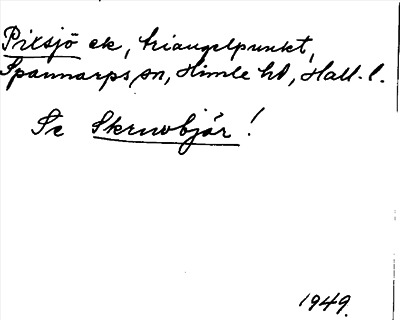 Pixsjö ek, triangelpunkt,
Spannarps sn, Himle hd, Hall. l.
Se Skruvbjär!
1949.